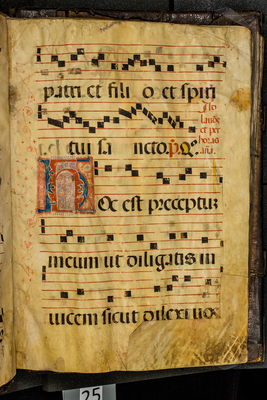 patri et fili o et spiri
tui sa ncto. p. Qo.
laudes
et per
horas
ana.
Hoc est preceptuz
meum ut diligatis in
uicem sicut dilexi uos
25